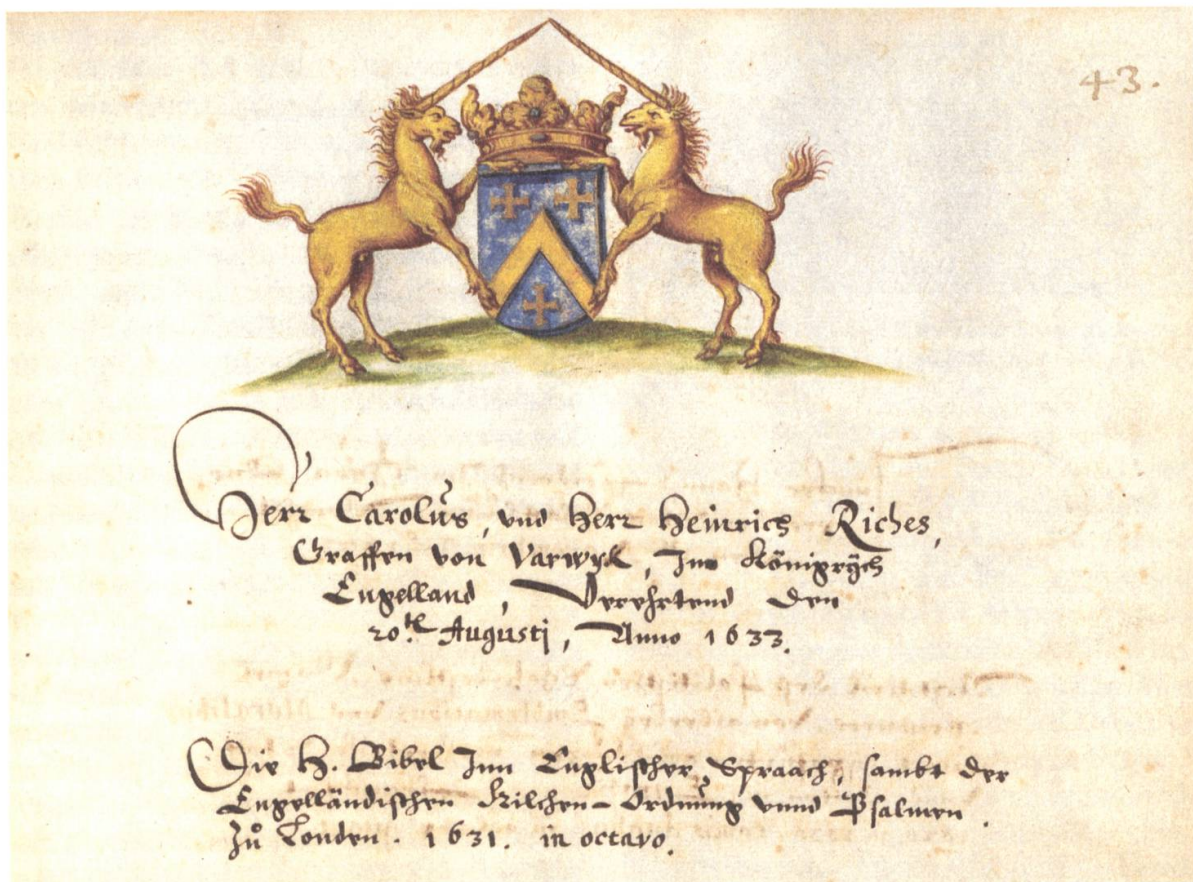 43.
Herr Carolus, vnd Herr Heinrich Riches,
Graffen von Varwyk, Inn Königrÿch
Engelland, Verehrtend den
20.ᵗᵉⁿ Augustj, Anno 1633.
Die H. Bibel Inn Englischer Spraach, sambt der
Engelländischen Kilchen-Ordnung vnnd Psalmen.
Zů Londen. 1631. in octavo.